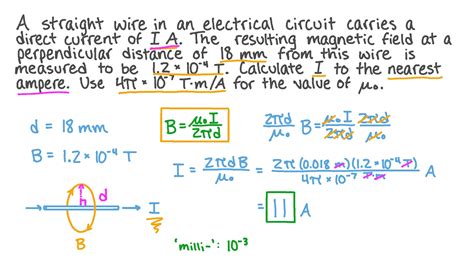 A straight wire in an electrical circuit carries a
direct current of I A. The resulting magnetic field at a
perpendicular distance of 18 mm from this wire is
measured to be 1.2 × 10⁻⁴ T. Calculate I to the nearest
ampere. Use 4π × 10⁻⁷ T·m/A for the value of μ₀.
d = 18 mm
B = 1.2 × 10⁻⁴ T
d
I
B
B = μ₀I / 2πd
2πd/μ₀ B = μ₀I/2πd 2πd/μ₀
I = 2πdB/μ₀ = 2π(0.018 m)(1.2×10⁻⁴ T) / 4π×10⁻⁷ T·m A
= 11 A
'milli-': 10⁻³